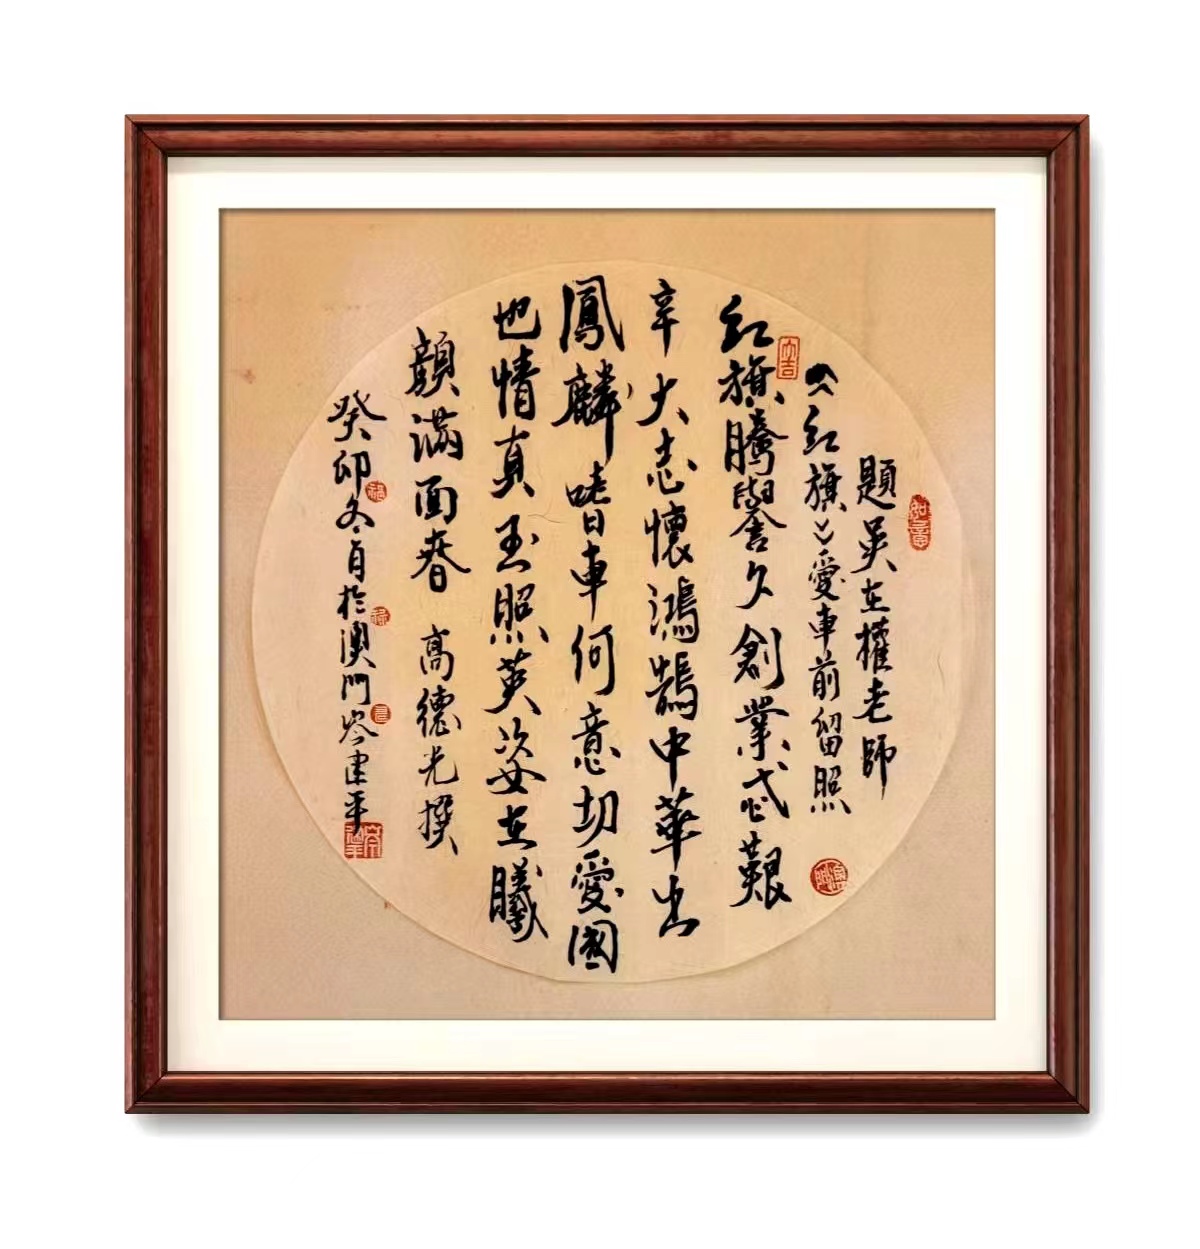 如意
題吳在權老師
《紅旗》愛車前留照
大吉
紅旗騰譽久創業忒艱
辛大志懷鴻鵠中華出
鳳麟嗜車何意切愛國
也情真玉照英姿在曦
顏滿面春 高德光撰
癸卯冬月於澳門岑建平
福
祿